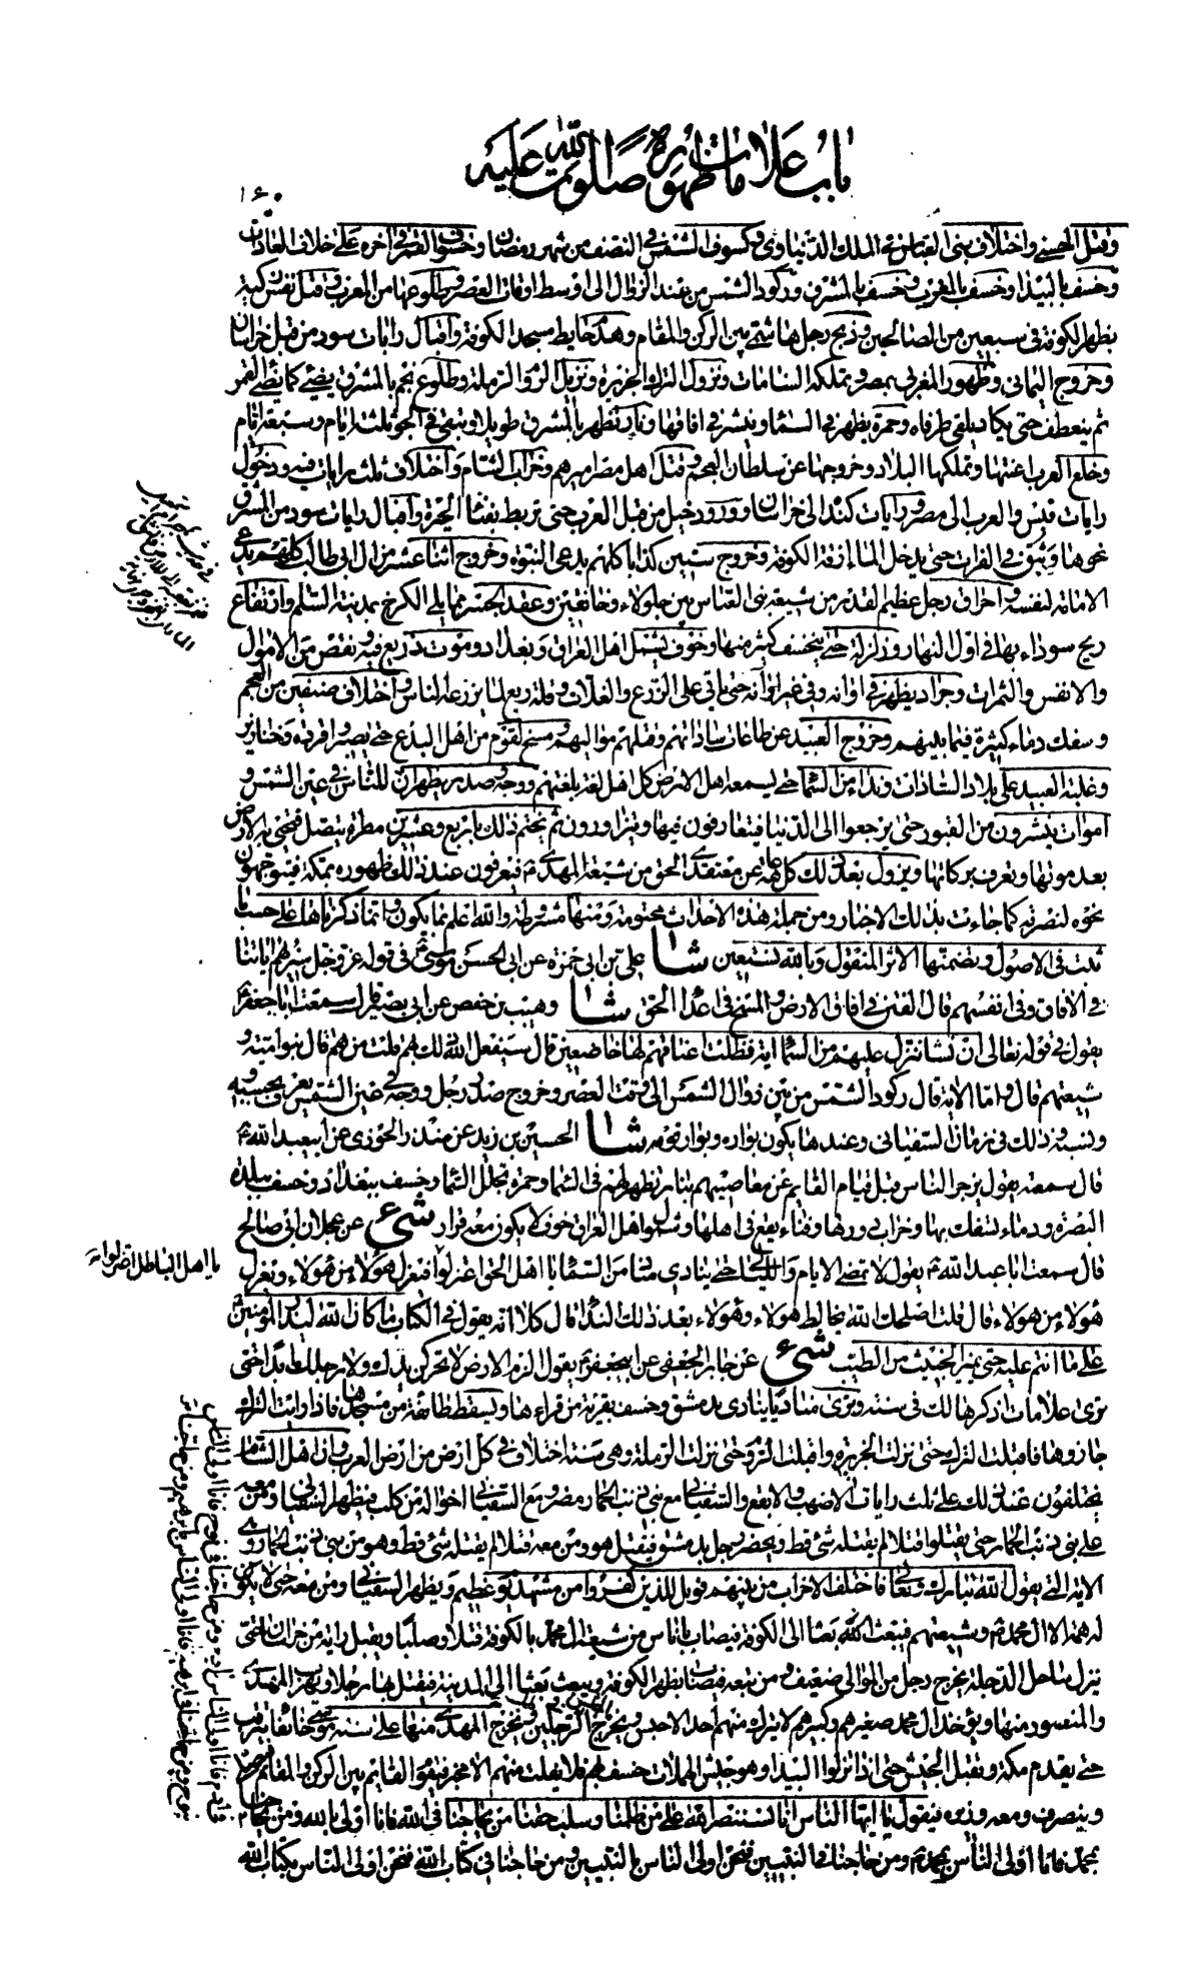 باب علامات ظهوره صلوات الله عليه
١٦٠
وقتل الحسني واختلاف بني العباس في الملك الدنياوي وكسوف الشمس في النصف من شهر رمضان وخسوف القمر في آخره على خلاف العادات
وخسف بالبيداء وخسف بالمغرب وخسف بالمشرق وركود الشمس من عند الزوال الى أوسط اوقات العصر وطلوعها من المغرب وقتل نفس زكية
بظهر الكوفة في سبعين من الصالحين وذبح رجل هاشمي بين الركن والمقام وهدم حايط مسجد الكوفة واقبال رايات سود من قبل خراسان
وخروج اليماني وظهور المغربي بمصر وتملكه الشامات ونزول الترك الجزيرة ونزول الروم الرملة وطلوع نجم بالمشرق يضئ كما يضئ القمر
ثم ينعطف حتى يكاد يلتقي طرفاه وحمرة يظهر في السماء وينشر في آفاقها ونار تظهر بالمشرق طويلا وتبقى في الجو ثلثة ايام او سبعة ايام
وخلع العرب اعنتها وتملكها البلاد وخروجها عن سلطان العجم وقتل اهل مصر اميرهم وخراب الشام واختلاف ثلث رايات فيه ودخول
رايات قيس والعرب الى مصر ورايات كندة الى خراسان وورود خيل من قبل العرب حتى تربط بفناء الحيرة واقبال رايات سود من المشرق
نحوها وبثق في الفرات حتى يدخل الماء ازقة الكوفة وخروج ستين كذابا كلهم يدعي النبوة وخروج اثنا عشر من آل ابي طالب كلهم يدعي
الامامة لنفسه واحراق رجل عظيم القدر من شيعة بني العباس بين جلولاء وخانقين وعقد الجسر مما يلي الكرخ بمدينة السلم وارتفاع
ريح سوداء بها في اول النهار وزلزلة حتى ينخسف كثير منها وخوف يشمل اهل العراق وبغداد وموت ذريع فيه ونقص من الاموال
والانفس والثمرات وجراد يظهر في اوانه وفي غير اوانه حتى ياتي على الزرع والغلات وقلة ريع لما يزرعه الناس واختلاف صنفين من العجم
وسفك دماء كثيرة فيما بينهم وخروج العبيد عن طاعات ساداتهم وقتلهم مواليهم ومسخ لقوم من اهل البدع حتى يصيروا قردة وخنازير
وغلبة العبيد على بلاد السادات ونداء من السماء حتى يسمعه اهل الارض كل اهل لغة بلغتهم ووجه وصدر يظهران للناس في عين الشمس و
اموات ينشرون من القبور حتى يرجعوا الى الدنيا فيتعارفون فيها ويتزاورون ثم يختم ذلك باربع وعشرين مطرة يتصل فتحيي به الارض
بعد موتها وتعرف بركاتها ويزول بعد ذلك كل عاهة عن معتقدي الحق من شيعة المهدي ع فيعرفون عند ذلك ظهوره بمكة فيتوجهون
نحوه لنصرته كما جاءت بذلك الاخبار ومن جملة هذه الاحداث محتومة ومنها مشروطة والله اعلم بما يكون وانما ذكرناها على حسب ما
ثبت في الاصول وتضمنها الاثر المنقول وبالله نستعين شا علي بن ابي حمزة عن ابي الحسن موسى ع في قوله عز وجل سنريهم آياتنا
في الآفاق وفي انفسهم قال الفتن في آفاق الارض والمسخ في اعداء الحق شا وهيب بن حفص عن ابي بصير قال سمعت ابا جعفر ع
يقول في قوله تعالى ان نشأ ننزل عليهم من السماء آية فظلت اعناقهم لها خاضعين قال سيفعل الله ذلك بهم قلت من هم قال بنو امية و
شيعتهم قال قلت وما الآية قال ركود الشمس من بين زوال الشمس الى وقت العصر وخروج صدر رجل ووجه في عين الشمس يعرف بحسبه
ونسبه وذلك في زمان السفياني وعندها يكون بواره وبوار قومه شا الحسين بن زيد عن منذر الجوزي عن ابي عبد الله ع
قال سمعته يقول يزجر الناس قبل قيام القائم عن معاصيهم بنار تظهر لهم في السماء وحمرة تجلل السماء وخسف ببغداد وخسف ببلدة
البصرة ودماء تسفك بها وخراب دورها وفناء يقع في اهلها وشمول اهل العراق خوف لا يكون معه قرار شي ع عن عجلان ابي صالح
قال سمعت ابا عبد الله ع يقول لا تمضي الايام والليالي حتى ينادي مناد من السماء يا اهل الحق اعتزلوا فيعزل هؤلاء من هؤلاء ويعزل
يا اهل الباطل اعتزلوا
هؤلاء من هؤلاء قال قلت اصلحك الله يخالط هؤلاء وهؤلاء بعد ذلك النداء قال كلا انه يقول في الكتاب ما كان الله ليذر المؤمنين
على ما انتم عليه حتى يميز الخبيث من الطيب شي ع عن جابر الجعفي عن ابي جعفر ع يقول الزم الارض لا تحركن يدك ولا رجلك ابدا حتى
ترى علامات اذكرها لك في سنة وترى مناديا ينادي بدمشق وخسف بقرية من قراها ويسقط طائفة من مسجدها فاذا رايت الترك
جازوها فاقبلت الترك حتى نزلت الجزيرة واقبلت الروم حتى نزلت الرملة وهي سنة اختلاف في كل ارض من ارض العرب وان اهل الشام
يختلفون عند ذلك على ثلث رايات الاصهب والابقع والسفياني مع بني ذنب الحمار مضر ومع السفياني اخواله من كلب فيظهر السفياني ومن معه
على بني ذنب الحمار حتى يقتلوا قتلا لم يقتله شئ قط ويحضر رجل بدمشق فيقتل هو ومن معه قتلا لم يقتله شئ قط وهو من بني ذنب الحمار وهي
الآية التي يقول الله تبارك وتعالى فاختلف الاحزاب من بينهم فويل للذين كفروا من مشهد يوم عظيم ويظهر السفياني ومن معه حتى لا يكون
له همة الا آل محمد ص وشيعتهم فيبعث الله بعثا الى الكوفة فيصاب باناس من شيعة آل محمد بالكوفة قتلا وصلبا ويقبل راية من خراسان حتى
ينزل ساحل الدجلة يخرج رجل من الموالي ضعيف ومن تبعه فيصاب بظهر الكوفة ويبعث بعثا الى المدينة فيقتل بها رجلا ويهرب المهدي
والمنصور منها ويؤخذ آل محمد صغيرهم وكبيرهم لا يترك منهم احد الا حبس ويخرج الجيش في طلب الرجلين ويخرج المهدي منها على سنة موسى خائفا يترقب
حتى يقدم مكة ويقبل الجيش حتى اذا نزلوا البيداء وهو جيش الهملات خسف بهم فلا يفلت منهم الا مخبر فيقوم القائم بين الركن والمقام فيصلي
وينصرف ومعه وزيره فيقول يا ايها الناس انا نستنصر الله على من ظلمنا وسلب حقنا من يحاجنا في الله فانا اولى بالله ومن يحاجنا
بمحمد فانا اولى الناس بمحمد ص ومن حاجنا في النبيين فنحن اولى الناس بالنبيين ومن حاجنا في كتاب الله فنحن اولى الناس بكتاب الله
في آدم فانا اولى الناس بآدم ومن حاجنا في نوح فانا اولى الناس
بنوح ومن حاجنا في ابراهيم فانا اولى الناس بابراهيم ومن حاجنا